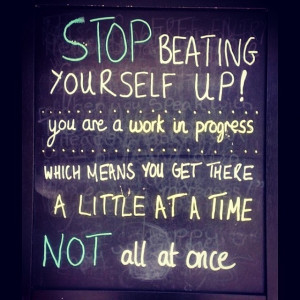 STOP BEATING
YOURSELF UP!
you are a work in progress
WHICH MEANS YOU GET THERE
A LITTLE AT A TIME
NOT all at once